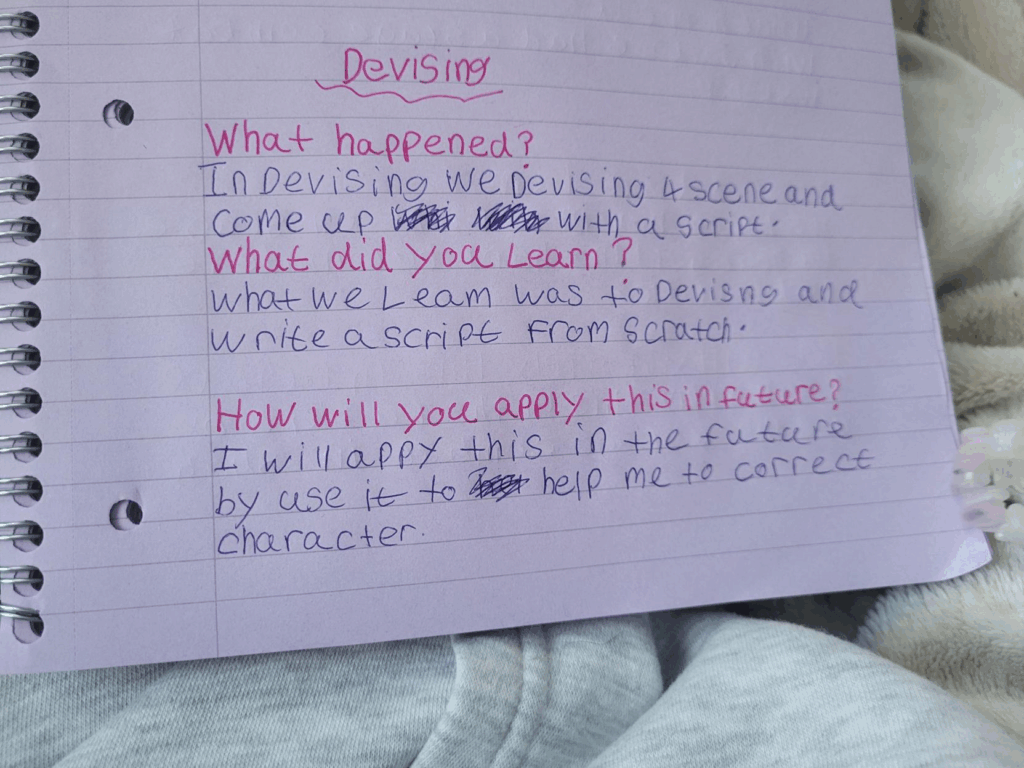 Devising
What happened?
In Devising we Devising 4 scene and
come up with a script.
What did you Learn?
what we Learn was to Devisng and
write a script from scratch.
How will you apply this in future?
I will appy this in the future
by use it to help me to correct
character.